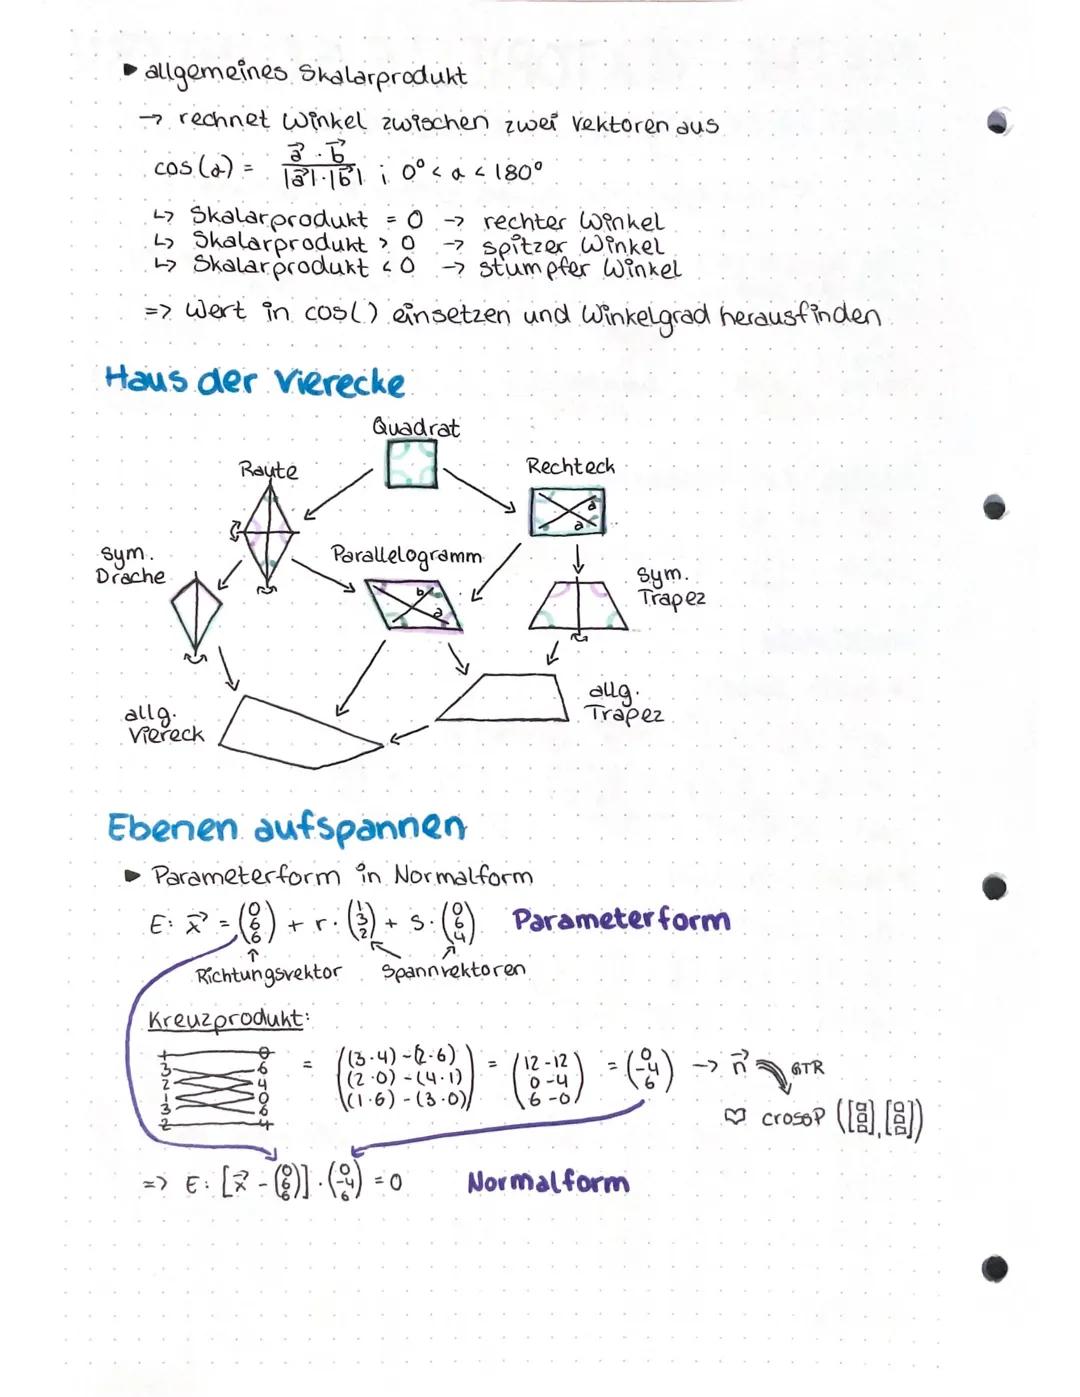 ▸ allgemeines Skalarprodukt
→ rechnet Winkel zwischen zwei Vektoren aus
cos(α) = (a⃗ · b⃗) / (|a⃗|·|b⃗|) ; 0° < α < 180°
↳ Skalarprodukt = 0 → rechter Winkel
↳ Skalarprodukt > 0 → spitzer Winkel
↳ Skalarprodukt < 0 → stumpfer Winkel
=> Wert in cos() einsetzen und Winkelgrad herausfinden
Haus der Vierecke
Quadrat
Raute
Rechteck
a
a
sym.
Drache
Parallelogramm
b
a
sym.
Trapez
allg.
Viereck
allg.
Trapez
Ebenen aufspannen
▸ Parameterform in Normalform
E: x⃗ = (0 6 6) + r · (1 3 2) + s · (0 6 4) Parameterform
Richtungsvektor Spannvektoren
Kreuzprodukt:
1 0
3 6
2 4
1 0
3 6
2 4
= ((3·4)-(2·6) (2·0)-(4·1) (1·6)-(3·0)) = (12-12 0-4 6-0) = (0 -4 6) → n⃗ GTR
♡ crossP ([], [])
=> E: [x⃗ - (0 6 6)] · (0 -4 6) = 0 Normalform